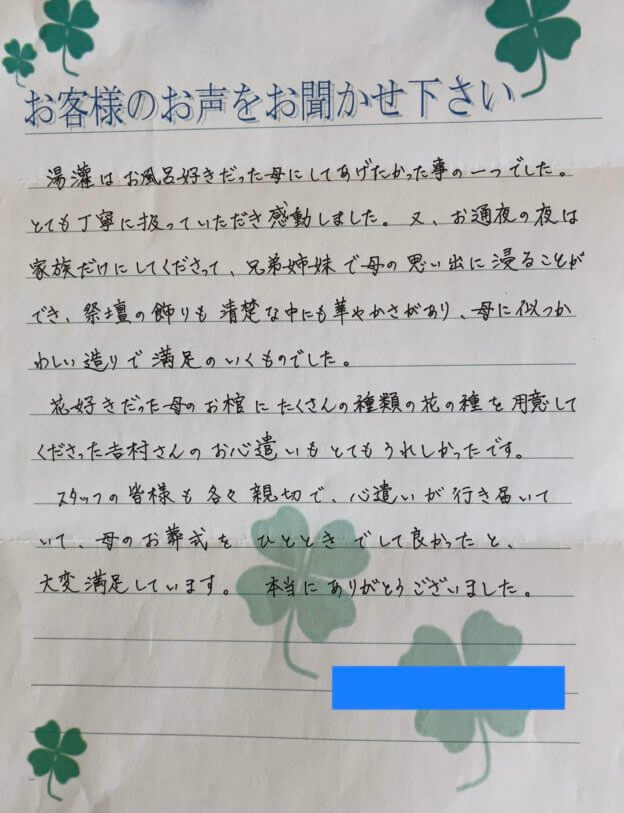 お客様のお声をお聞かせ下さい
湯灌はお風呂好きだった母にしてあげたかった事の一つでした。
とても丁寧に扱っていただき感動しました。又、お通夜の夜は
家族だけにしてくださって、兄弟姉妹で母の思い出に浸ることが
でき、祭壇の飾りも清楚な中にも華やかさがあり、母に似つか
わしい造りで満足のいくものでした。
花好きだった母のお棺にたくさんの種類の花の種を用意して
くださった吉村さんのお心遣いもとてもうれしかったです。
スタッフの皆様も各々親切で、心遣いが行き届いて
いて、母のお葬式をひとときでして良かったと、
大変満足しています。 本当にありがとうございました。